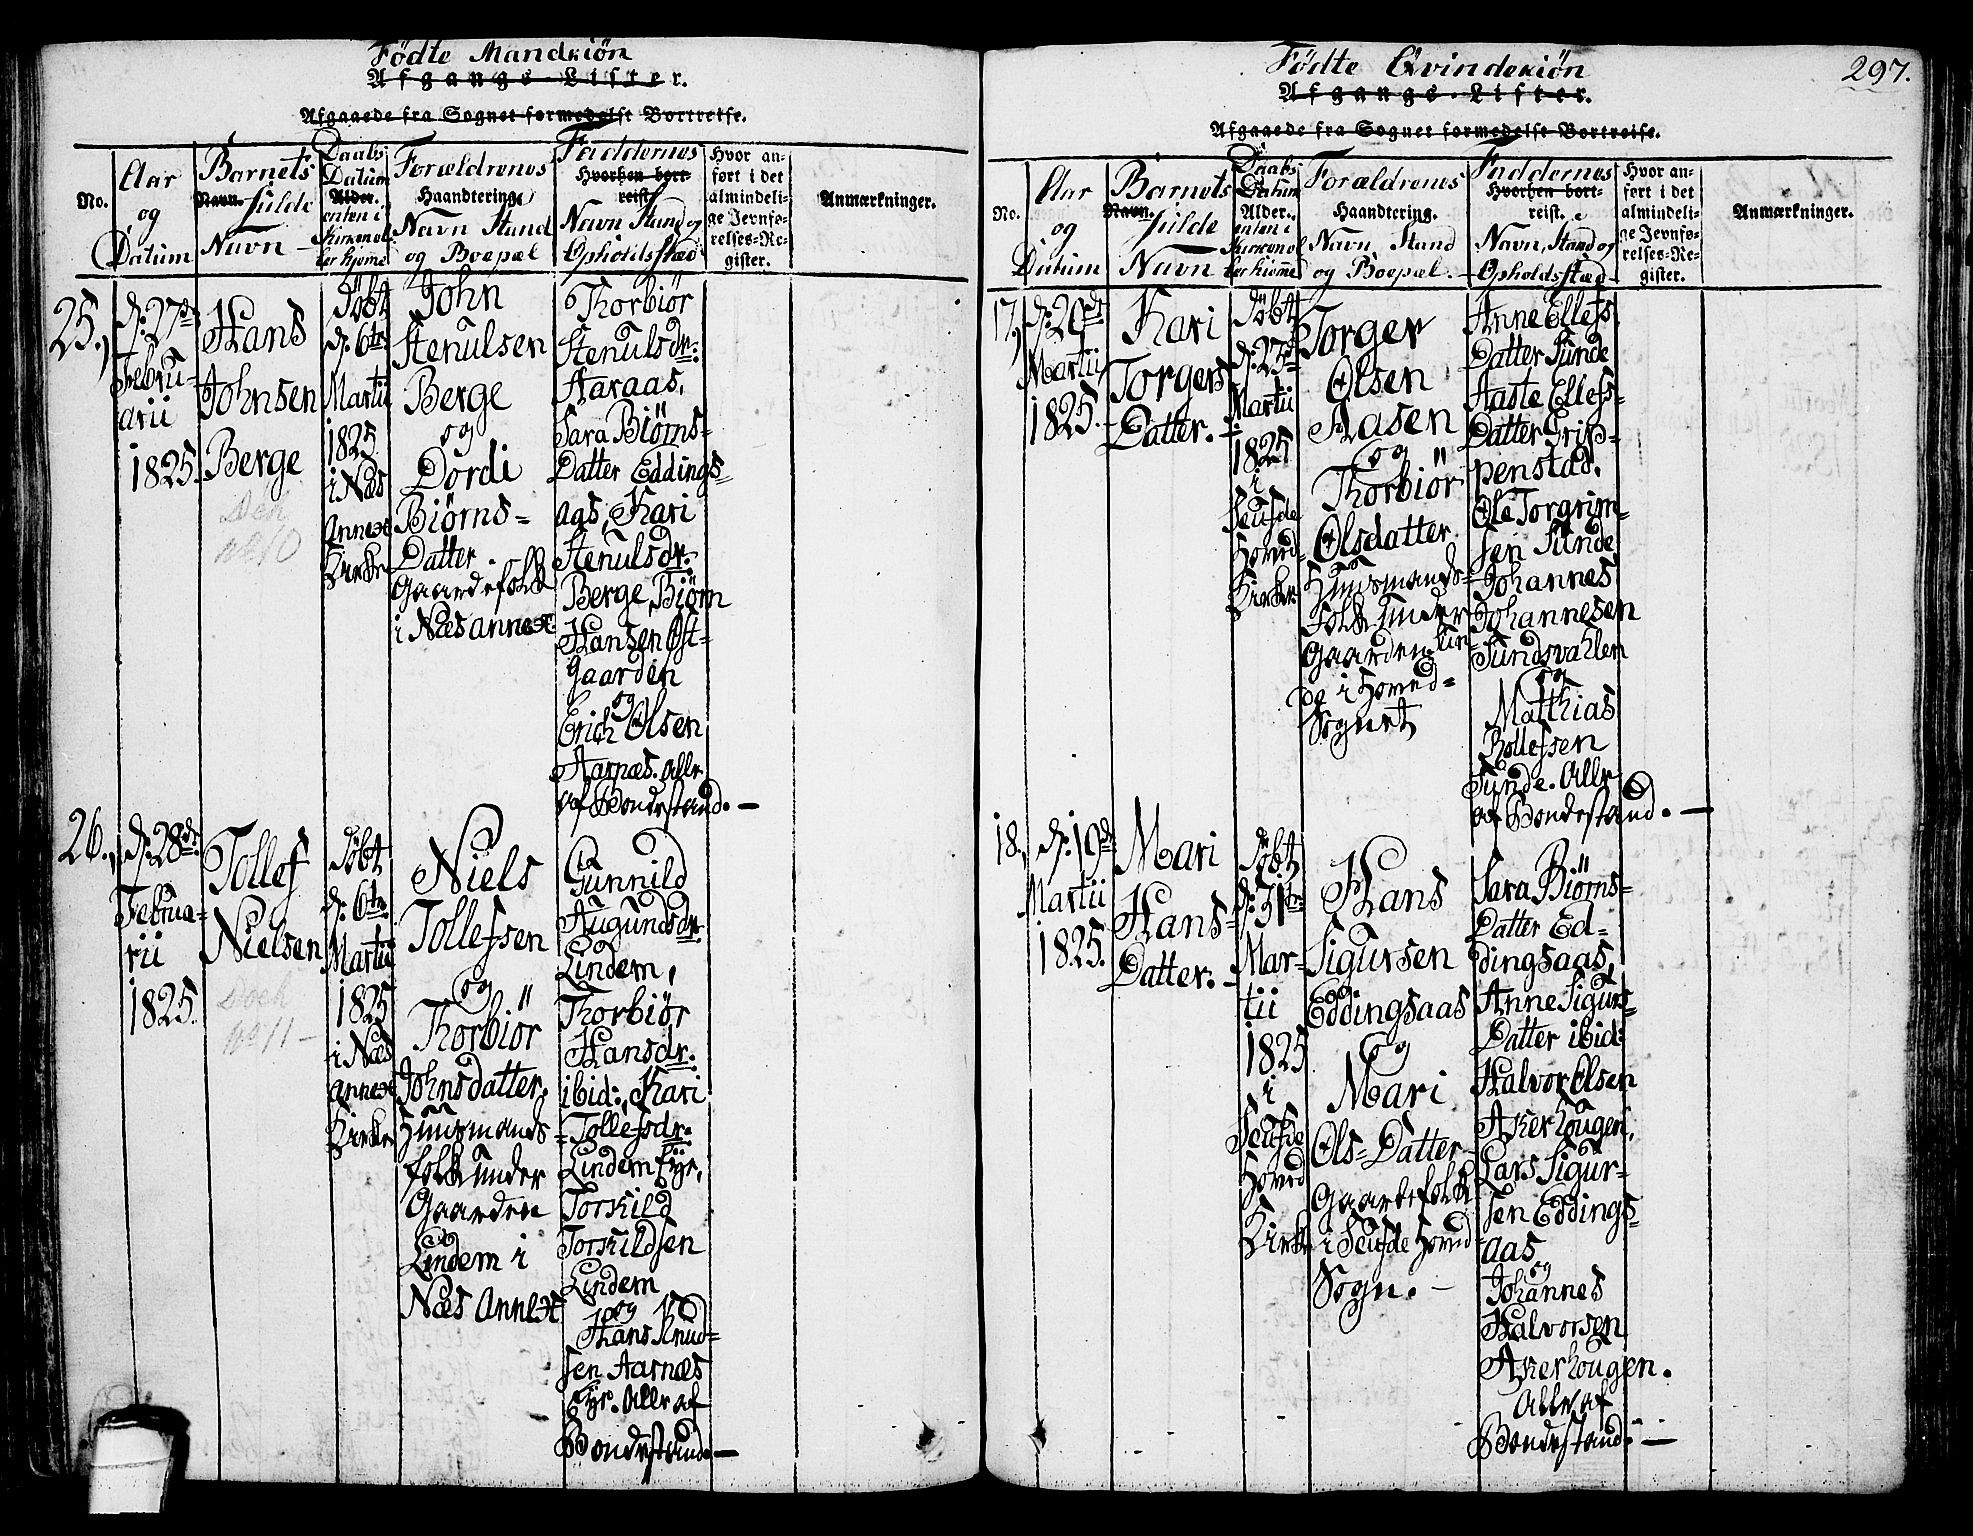 Fødte Mandkiøn
Afgangs-Lister.
Afgaaede fra Sognet formedelst Bortreise.
No.
Aar
og
Datum
Barnets
Navn. fulde
Navn
Daabs
Datum
Alder.
enten i
Kirken el
ler hjeme
Forældrenes
Haandtering,
Navn Stand
og Boepæl
Faddernes
Hvorhen bort-
reist
Navn Stand og
Opholdsstæd
Hvor an-
ført i det
almindeli-
ge Jevnfø-
relses-Re-
gister.
Anmærkninger.
25.,
d: 27de
Febru-
arii
1825.
Hans
Johnsen
Berge
Døbt
d: 6te
Martii
1825
i Næs
Annex
Kirke
John
Stenulsen
Berge
og
Dordi
Biørns=
Datter.
Gaardefolk
i Næs annex.
Thorbiör
Stenulsdr:
Haraas,
Sara Biørns=
Datter Eddings=
aas, Kari
Stenulsdr:
Berge, Biørn
Hansen Øst=
gaarden
og
Erich Olsen
Aarnæs. Alle
af Bondestand. —
26.,
d: 28de
Februa-
rii
1825.
Tollef
Nielsen
Døbt
d: 6te
Martii
1825
i Næs
annex
Kirke
Niels
Tollefsen
og
Thorbiör
Johnsdatter,
Huusmands=
folk under
Gaarden
Lindem i
Næs Annext
Gunnild
Augundsdr:
Lindem,
Thorbiør
Hansdr:
ibid:, Kari
Tollefsdr:
Lindem Eje,
Torkild
Torkildsen
Lindem
og
Hans Knud=
sen Aarnæs
Eje. Alle af
Bondestand. —
Fødte Qvindekiön
297.
Afgangs-Lister.
Afgaaede fra Sognet formedelst Bortreise.
No.
Aar
og
Datum
Barnets
Navn. fulde
Navn
Daabs
Datum
Alder.
enten i
Kirken el
ler hieme
Forældrenes
Haandtering.
Navn, Stand
og Boepæl. —
Faddernes
Hvorhen bort-
reist.
Navn, Stand og
Opholdsstæd
Hvor an-
ført i det
almindeli-
ge Jevnfø-
relses-Re-
gister.
Anmærkninger.
17,
d: 20de
Martii
1825.
Kari
Torgers
Datter.
Døbt
d: 27de
Martii
1825
i
Seufde
Hoved=
Kirke
Torger
Olsen
Aasen
og
Thorbiör
Olsdatter
Huusmands=
folk under
Gaarden
i Hoved=
Sognet
Anne Ellefs
Datter Sunde
Aaste Ellefs-
Datter Grip=
penstad,
Ole Torgrim=
sen Sunde
Johannes
Johannesen
Sundsvahlen
og
Matthias
Rollefsen
Sunde. Alle
af Bondestand. —
18.,
d: 19de
Martii
1825.
Mari
Hans=
Datter. —
Døbt
d: 31te
Mar-
tii
1825
i
Seufde
Hoved
Kirke
Hans
Sigursen
Eddingsaas
og
Mari
Ols=Datter
Gaardefolk
i Seufde Hoved=
Sogn. —
Sara Biørns=
Datter Ed=
dingsaas,
Anne Sigurs=
Datter ibid:
Halvor Elsen
Akerhougen,
Lars Sigur-
sen Eddings=
aas
og
Johannes
Halvorsen
Akerhougen.
Alle af
Bondestand. —